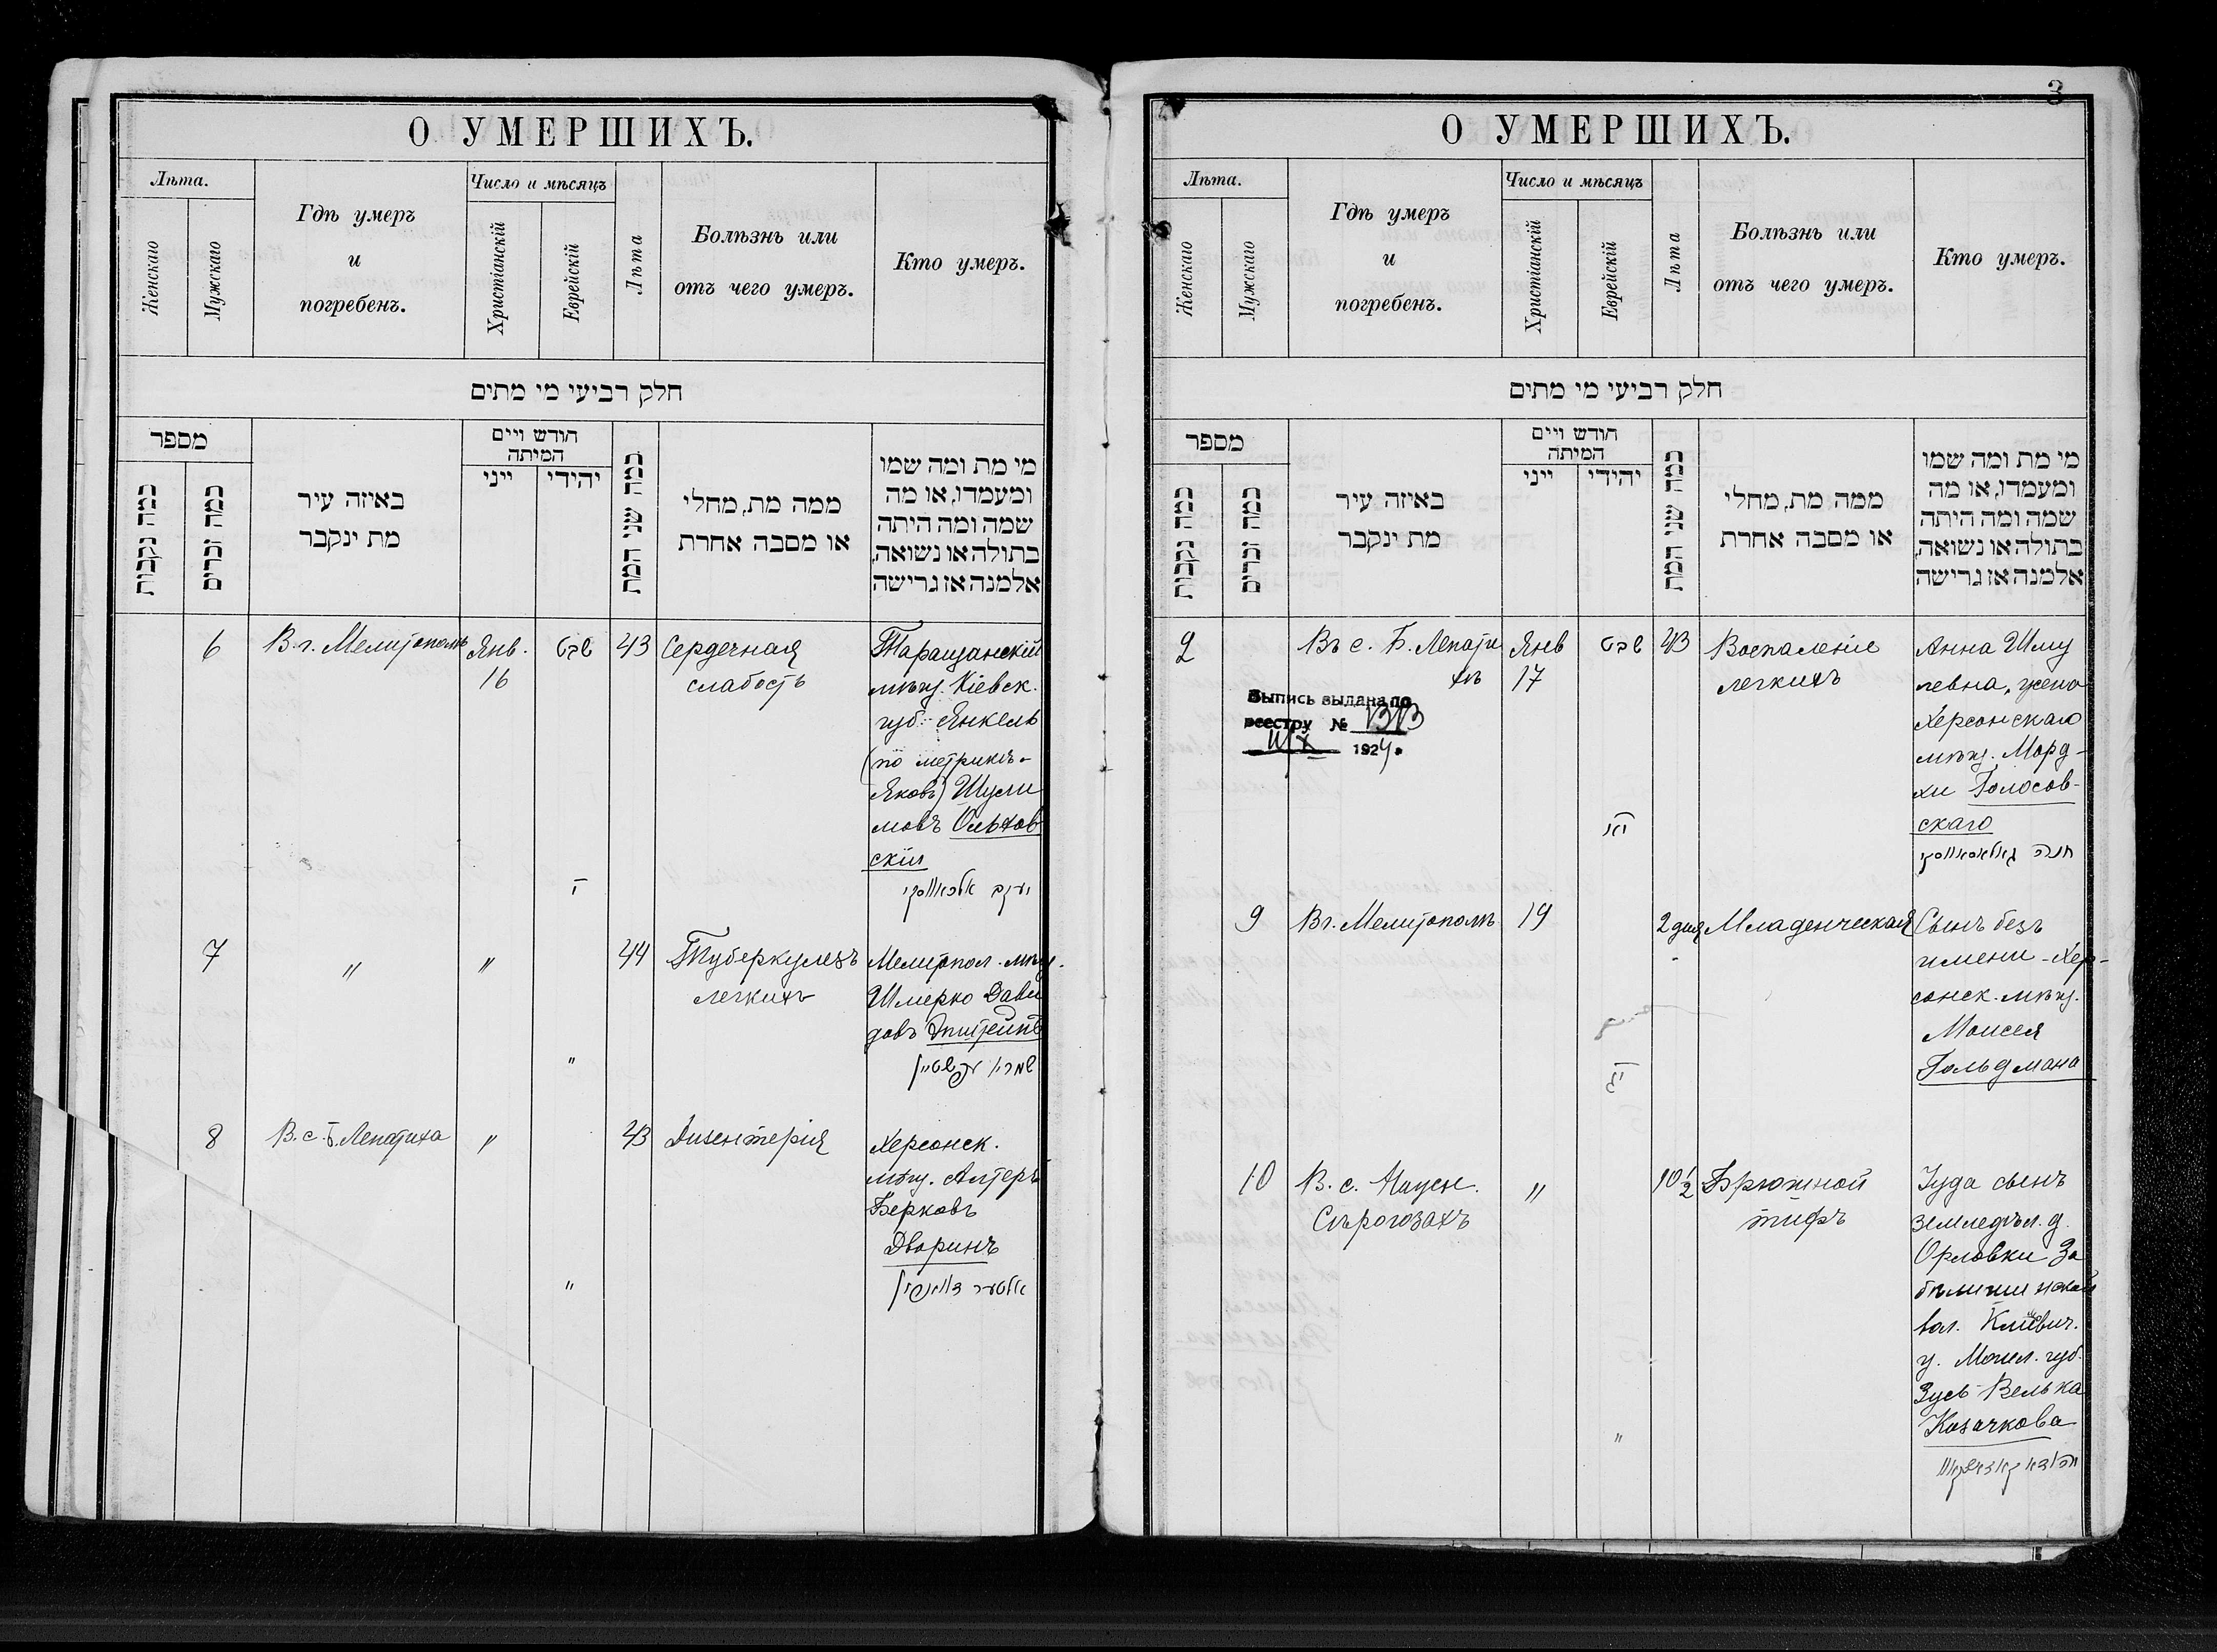 3
О УМЕРШИХЪ.
Лѣта.
Женскаго
Мужскаго
Гдѣ умеръ
и
погребенъ.
Число и мѣсяцъ
Христіанскій
Еврейскій
Лѣта
Болѣзнь или
отъ чего умеръ.
Кто умеръ.
חלק רביעי מי מתים
מספר
כמה נקבות
כמה זכרים
באיזה עיר
מת ינקבר
חודש ויים
המיתה
ייני
יהודי
כמה שני המת
ממה מת, מחלי
או מסבה אחרת
מי מת ומה שמו
ומעמדו, או מה
שמה ומה היתה
בתולה או נשואה,
אלמנה אז גרישה
6
В. г. Мелитополѣ
Янв.
16
שבט
ה
43
Сердечная
слабость
Таращанскій
мѣщ. Кіевск.
губ. Янкель
(по метрикѣ -
Яковъ) Шули
мовъ Ольхов
скій
יעקב אלכאווסקי
7
"
"
"
44
Туберкулезъ
легкихъ
Мелитопол. мѣщ.
Шмерко Дави
довъ Эпштейнъ
שמריל עפשטיין
8
В. с. Б. Лепатиха
"
"
43
Дизентерія
Херсонск.
мѣщ. Алтеръ
Берковъ
Дворинъ
אלטער
О УМЕРШИХЪ.
Лѣта.
Женскаго
Мужскаго
Гдѣ умеръ
и
погребенъ.
Число и мѣсяцъ
Христіанскій
Еврейскій
Лѣта
Болѣзнь или
отъ чего умеръ.
Кто умеръ.
חלק רביעי מי מתים
מספר
כמה נקבות
כמה זכרים
באיזה עיר
מת ינקבר
חודש ויים
המיתה
ייני
יהידי
כמה שני המת
ממה מת, מחלי
או מסבה אחרת
מי מת ומה שמו
ומעמדו, או מה
שמה ומה היתה
בתולה או נשואה,
אלמנה אז גרישה
2
Въ с. Б. Лепати
хѣ
Янв
17
שבט
43
Воспаленіе
легкихъ
Анна Шму
левна, жена
Херсонскаго
мѣщ. Морд-
хи Голосов-
скаго
חנה גאלאסאווסקי
Выпись выдана по
реестру №
192
9
В г. Мелитополѣ
19
יג
2 дня
Младенческая
Сынъ безъ
имени - Хер-
сонск. мѣщ.
Моисея
Гольдмана
10
В. с. Нижн.
Сѣрогозахъ
"
"
10 1/2
Брюшной
тифъ
Іуда сынъ
земледѣл. д.
Орловки За
бѣлышинской
вол. Климович.
у. Могил. губ.
Зусь-Велька
Козачкова